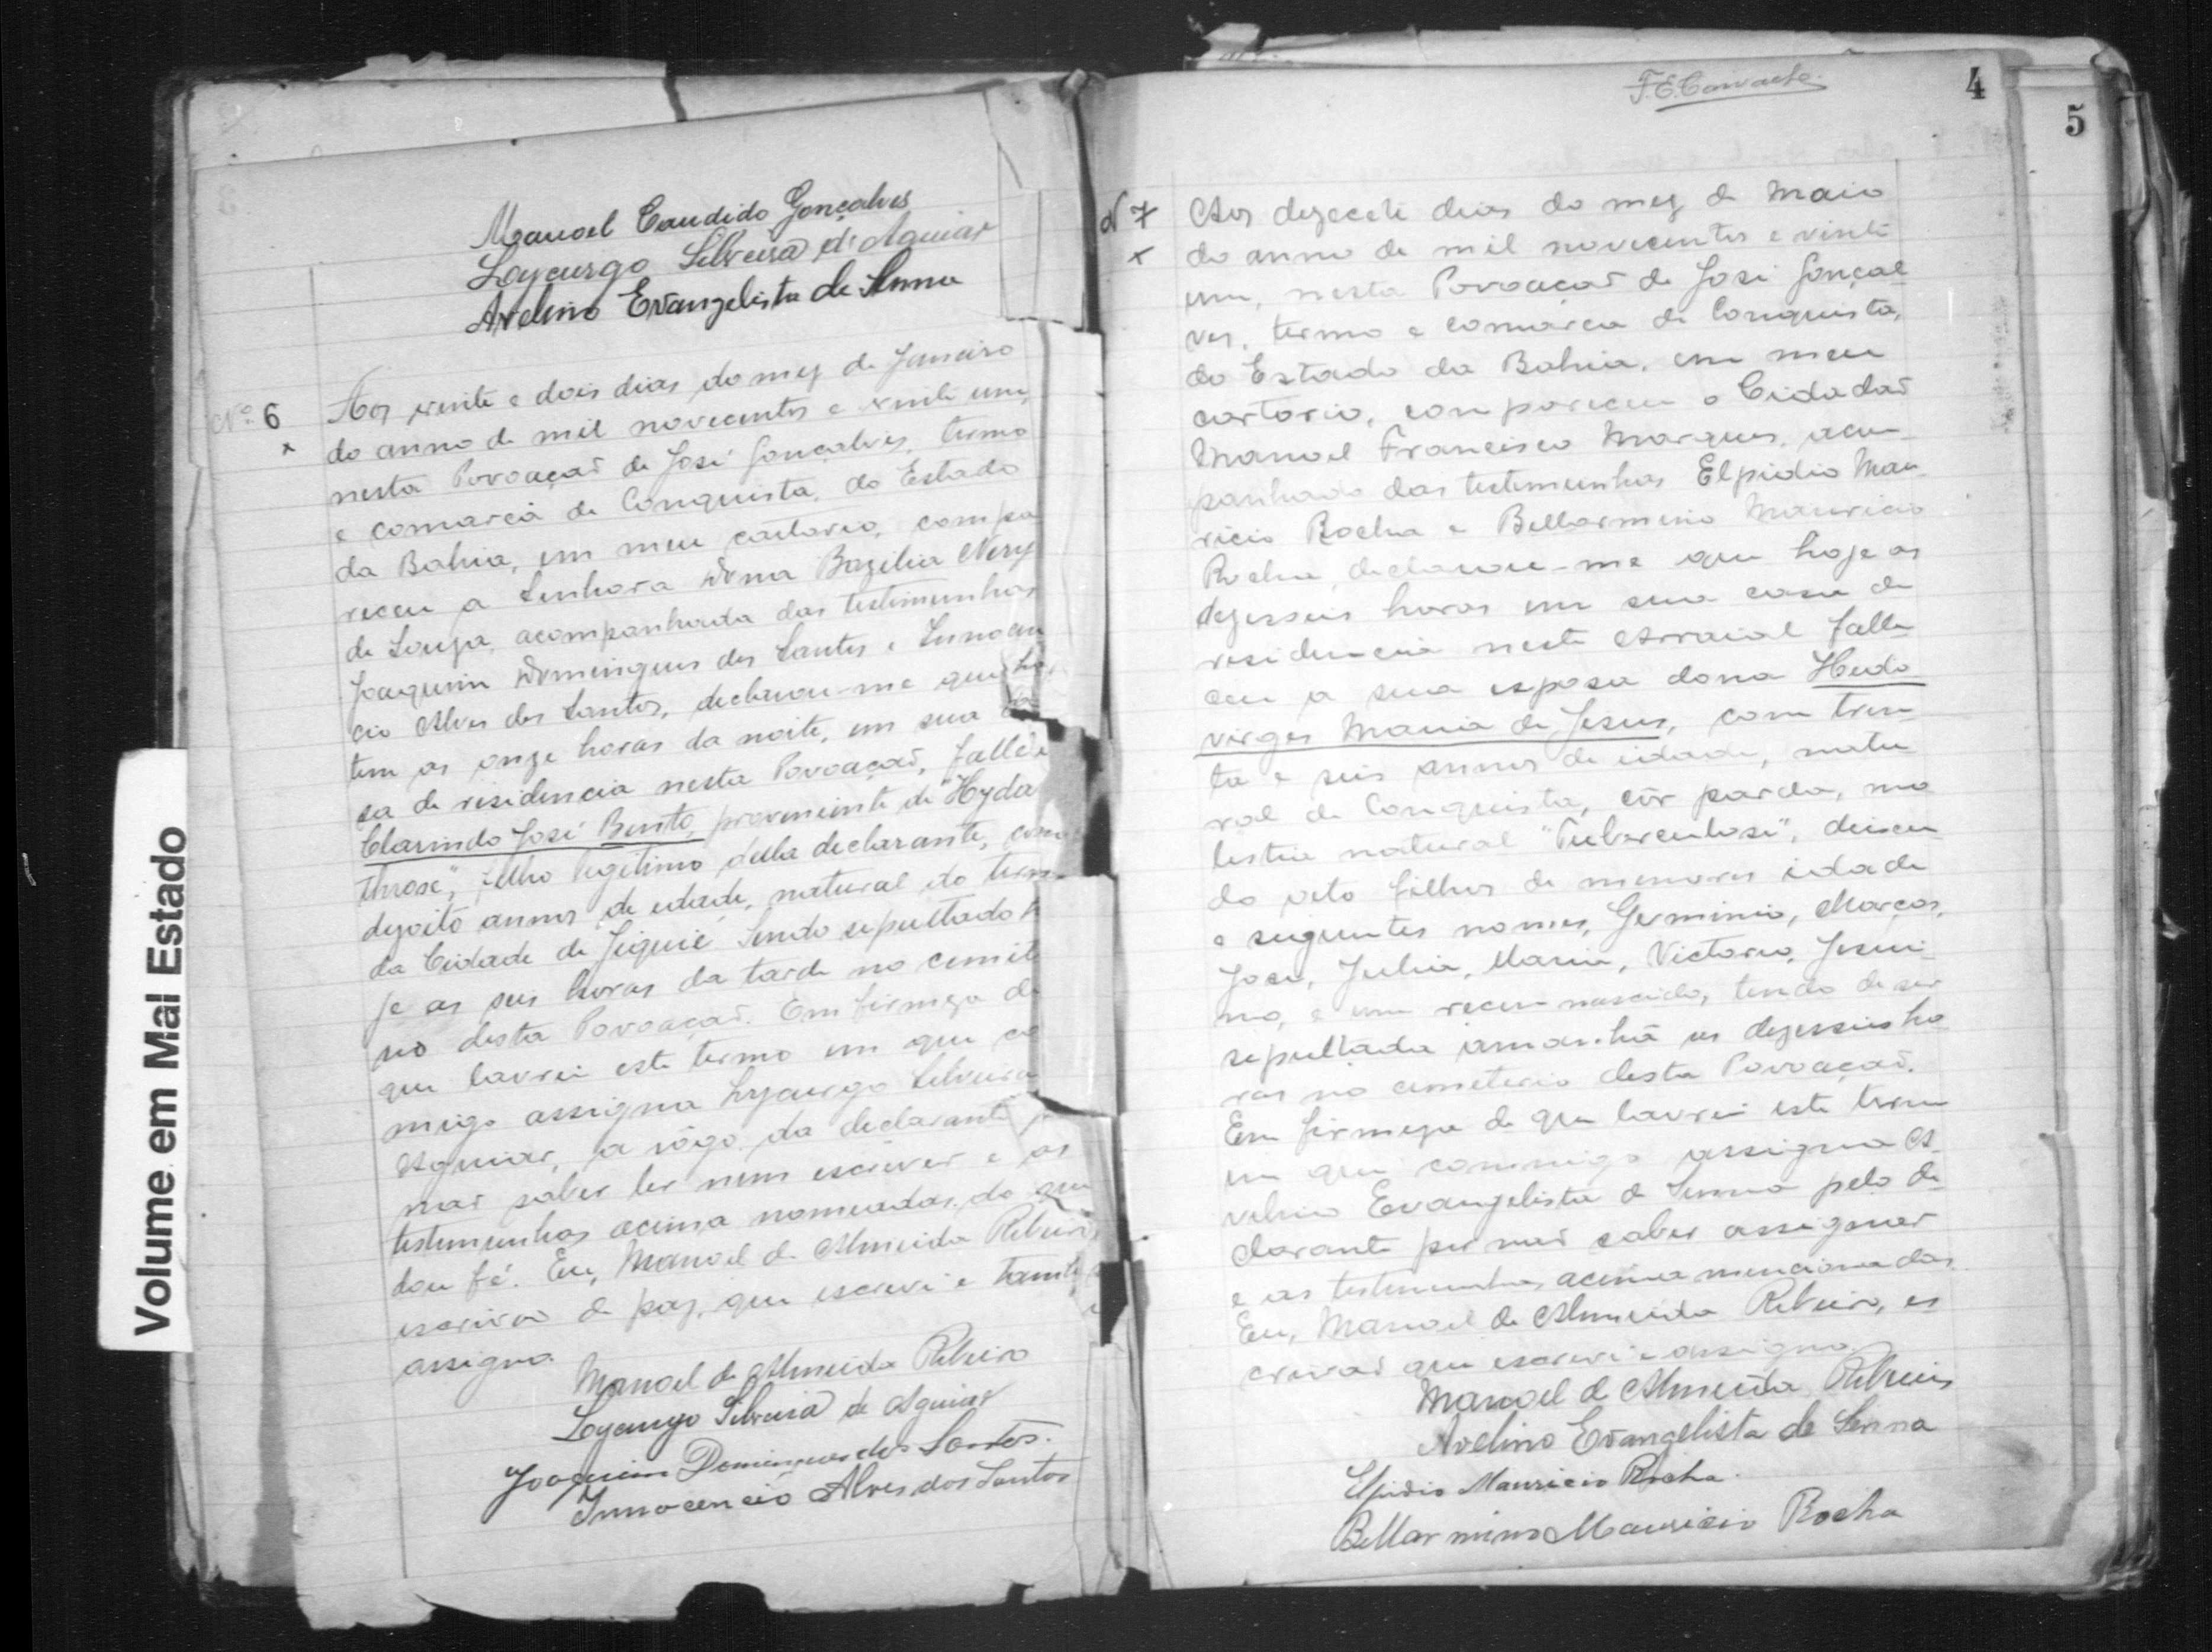 Volume em Mal Estado
Manoel Candido Gonçalves
Loycurgo Silveira d'Aguiar
Avelino Evangelista de Senna
Nº 6
Aos vinte e dois dias do mez de Janeiro
do anno de mil novecentos e vinte um,
nesta Povoação de José Gonçalves, termo
e comarca de Conquista, do Estado
da Bahia, em meu cartorio, compa
receu a Senhora Dona Bazilia Nery
de Souza, acompanhada das testimunhas
Joaquim Domingues dos Santos e Innocen
cio Alves dos Santos, declarou-me que hon
tem as onze horas da noite, em sua ca
sa de residencia nesta Povoação, fallece
Clarindo José Bento, proveniente de "Hyda
throse", filho legitimo della declarante, com
dezoito annos de edade, natural do termo
da Cidade de Jequié. Sendo sepultado h
je as seis horas da tarde no cemite
rio desta Povoação. Em firmeza do
que lavrei este termo em que co
migo assigna Lycurgo Silveira
Aguiar, a rôgo da declarante p
não saber ler nem escrever e as
testimunhas acima nomeadas, do que
dou fé. Eu, Manoel de Almeida Ribeiro,
escrivão de paz, que escrevi e tambe
assigno.
Manoel de Almeida Ribeiro
Loycurgo Silveira de Aguiar
Joaquim Domingues dos Santos.
Innocencio Alves dos Santos
4
5
N 7
Aos dezecete dias do mez de Maio
do anno de mil novecentos e vinte
um, nesta Povoação de José Gonçal
ves, termo e comarca de Conquista,
do Estado da Bahia, em meu
cartorio, compareceu o Cidadão
Manoel Francisco Marques, acom
panhado das testimunhas Elpidio Mau
ricio Rocha e Bellarmino Mauricio
Rocha, declarou-me que hoje as
dezesseis horas em sua casa de
residencia neste Arraial falle
ceu a sua esposa dona Hedo
virges Maria de Jesus, com trin
ta e seis annos de idade, natu
ral de Conquista, côr parda, mo
lestia natural "Tuberculose", deixou
do oito filhos de menores idade
e seguintes nomes, Germinio, Marcos,
José, Julia, Maria, Victorio, Jesui
no, e um recem-nascido, tendo de ser
sepultada amanhã as dezesseis ho
ras no cemeterio desta Povoação.
Em firmeza de que lavrei este termo
em que commigo assigna A
velino Evangelista de Senna pelo de
clarante por não saber assignar
e as testimunhas acima mencionadas.
Eu, Manoel de Almeida Ribeiro, es
crivão que escrevi e assigno.
Manoel de Almeida Ribeiro
Avelino Evangelista de Senna
Elpidio Mauricio Rocha.
Bellarmino Mauricio Rocha